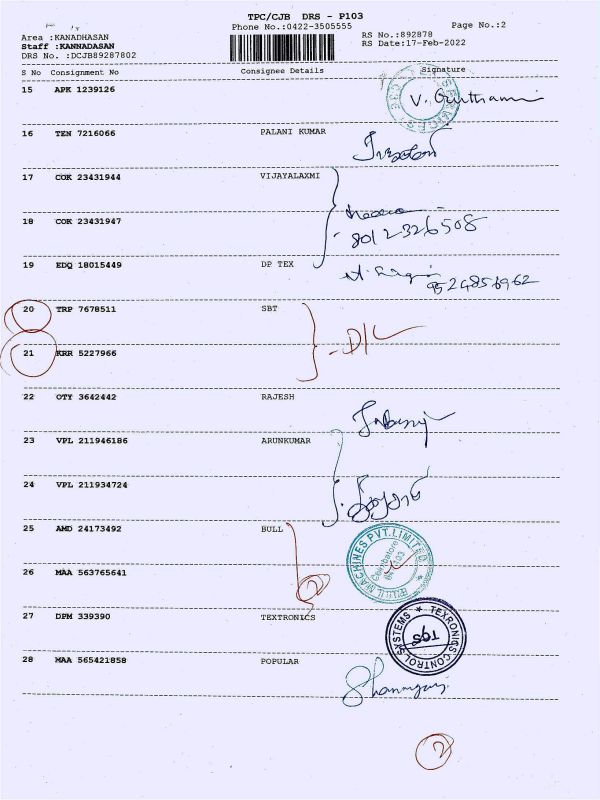 TPC/CJB DRS - P103
Phone No.:0422-3505555
Page No.:2
Area :KANADHASAN
Staff :KANNADASAN
DRS No. :DCJB89287802
RS No.:892878
RS Date:17-Feb-2022
S No Consignment No Consignee Details Signature
15 APK 1239126
16 TEN 7216066 PALANI KUMAR
17 COK 23431944 VIJAYALAXMI
18 COK 23431947
8012326508
19 EDQ 18015449 DP TEX
9524856962
20 TRP 7678511 SBT
21 KRR 5227966
22 OTY 3642442 RAJESH
23 VPL 211946186 ARUNKUMAR
24 VPL 211934724
25 AMD 24173492 BULL
26 MAA 563765641
MACHINES PVT.LIMITED
Coimbatore
2
27 DPM 339390 TEXTRONICS
TEXRONICS CONTROL SYSTEMS
TQS
28 MAA 565421858 POPULAR
2